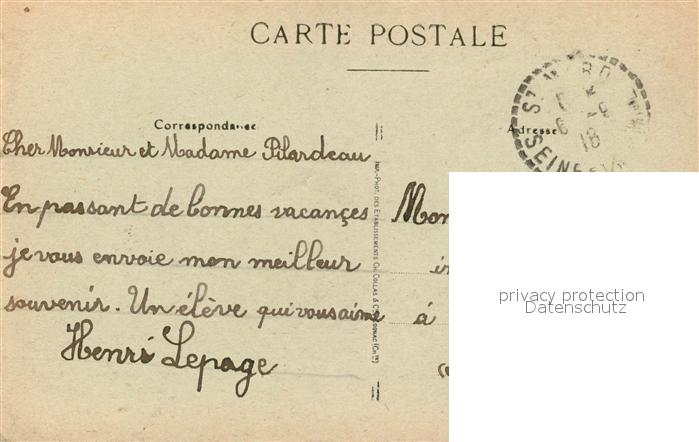 CARTE POSTALE
Correspondance
Adresse
Cher Monsieur et Madame Pilardeau
En passant de bonnes vacançes
je vous envoie mon meilleur
souvenir. Un élève qui vous aime
Henri Lepage
Mon
à
IMP.-PHOT. DES ETABLISSEMENTS CH. COLLAS & COGNAC (Chte)
privacy protection
Datenschutz